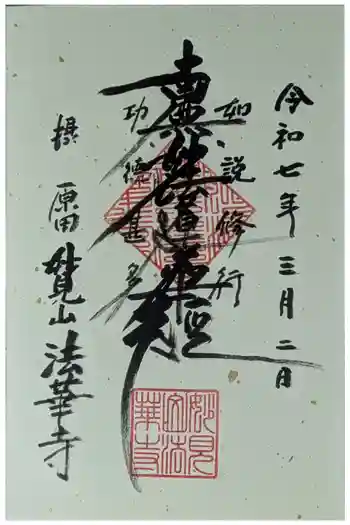 令和七年三月二日
如説修行
南無妙法蓮華経
功徳甚多
摂 原田
妙見山法華寺
妙見山法華寺